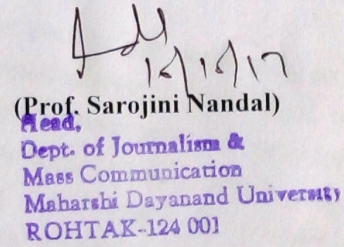 16/10/17
(Prof. Sarojini Nandal)
Head,
Dept. of Journalism &
Mass Communication
Maharshi Dayanand University
ROHTAK-124 001